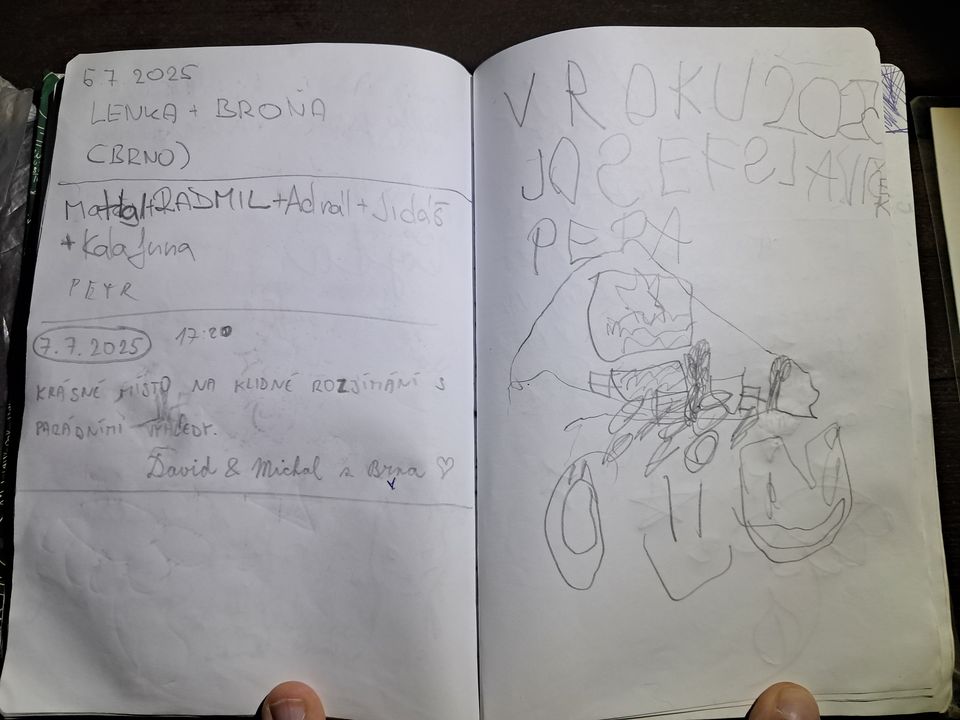 5.7.2025
LENKA + BROŇA
(BRNO)
+RADMIL+Adnall+Jidáš
+
PETR
7.7.2025 17:20
KRÁSNÉ MÍSTO NA KLIDNÉ ROZJÍMÁNÍ S
PARÁDNÍMI VÝHLEDY.
David & Michal z Brna ♡
V ROKU 2025
JOSEF SLAVÍČEK
PEPA